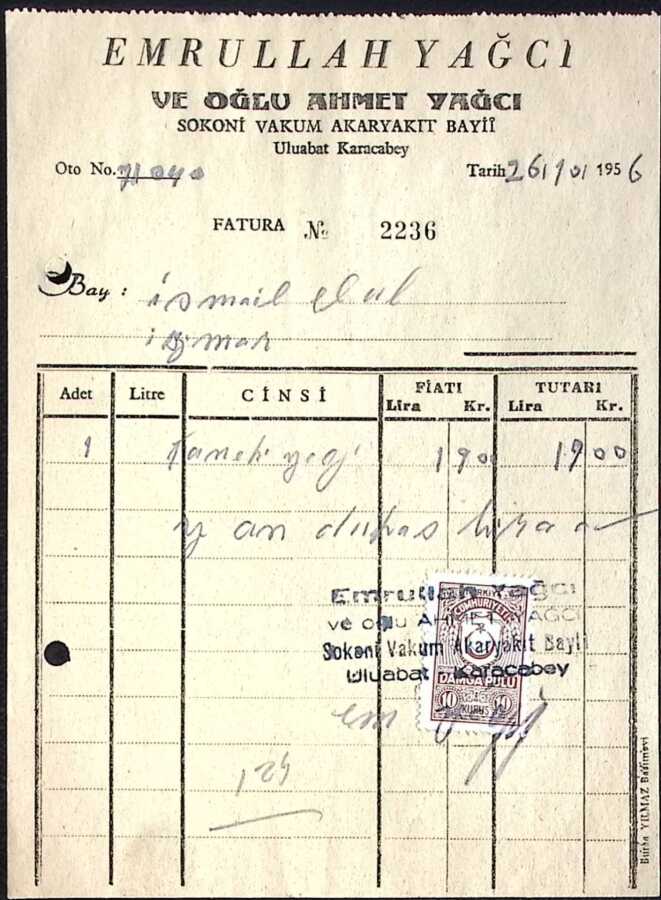 EMRULLAH YAĞCI
VE OĞLU AHMET YAĞCI
SOKONİ VAKUM AKARYAKIT BAYİİ
Uluabat Karacabey
Oto No. Tarih 26/10/1956
FATURA № 2236
Bay : ismail
Adet Litre CİNSİ FİATI TUTARI
Lira Kr. Lira Kr.
1 1900 1900
Emrullah Yağcı
ve oğlu AHMET YAĞCI
Sokoni Vakum Akaryakıt Bayii
Uluabat Karacabey
TÜRKİYE
CUMHURİYETİ
DAMGA PULU
10 KURUŞ 10
124
Bursa YILMAZ Basımevi